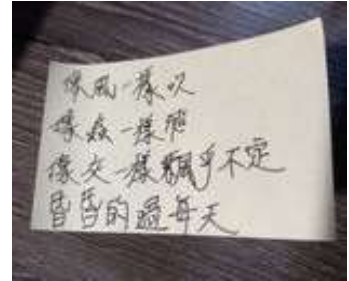 像風一樣吹
像一樣
像交一樣飄乎不定
昏昏的過每天